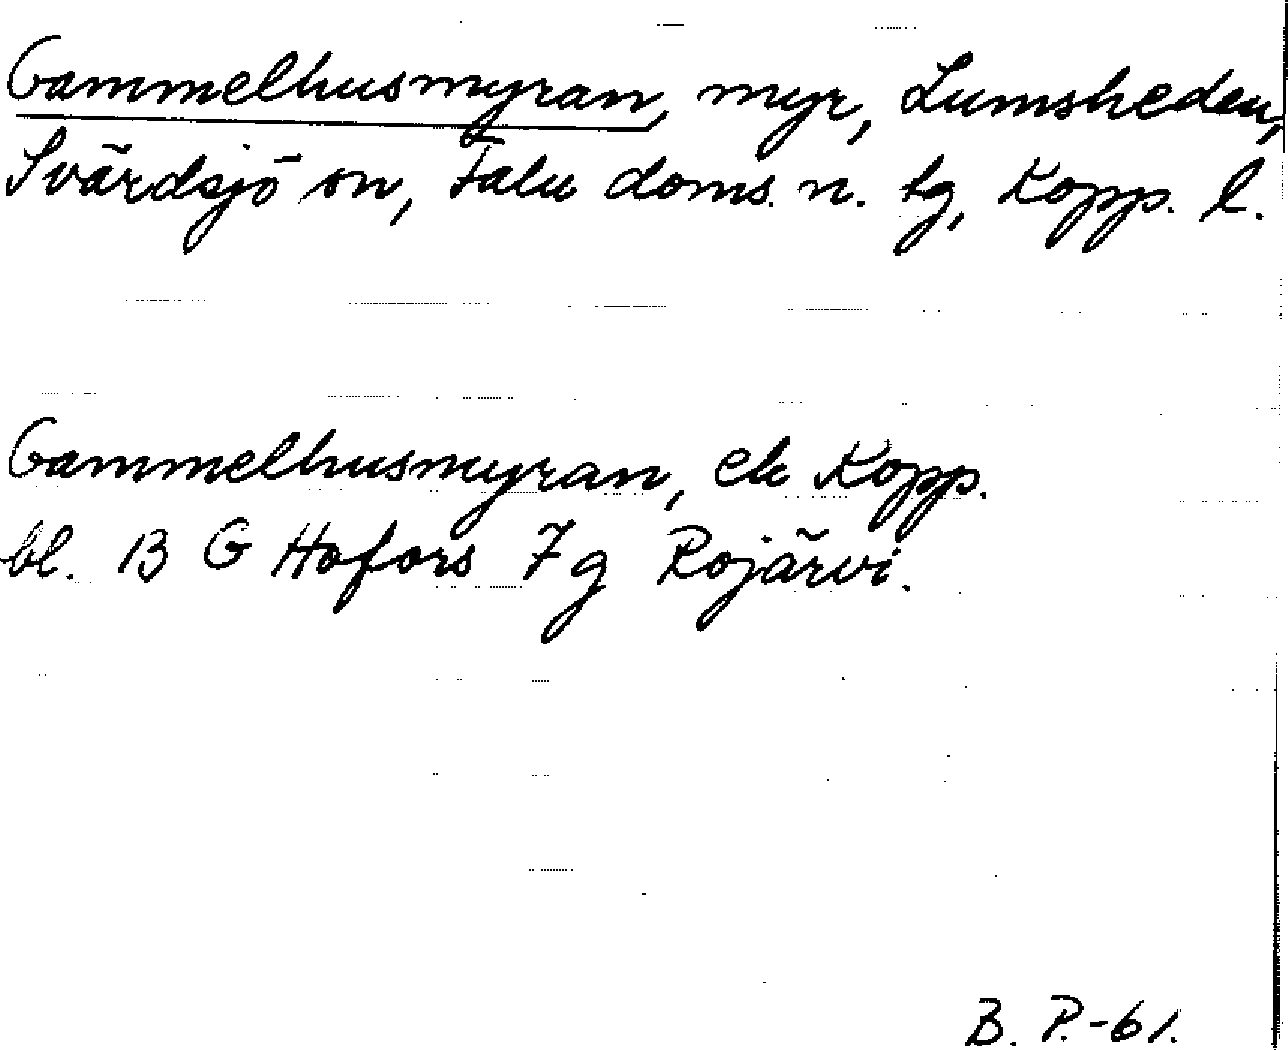 Gammelhusmyran, myr, Lumsheden,
Svärdsjö sn, Falu doms. n. tg, Kopp. l.
Gammelhusmyran, ek Kopp.
bl. 13 G Hofors 7 g Rojärvi.
B. P.-61.